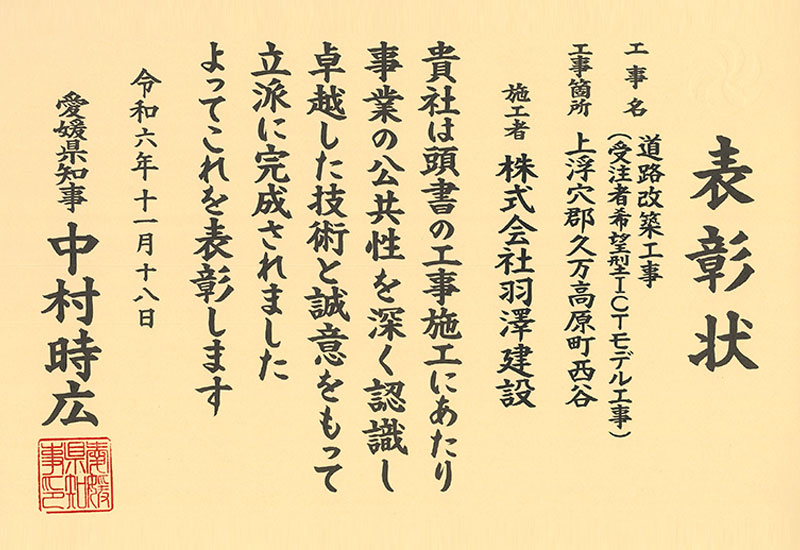 表彰状
工事名 道路改築工事
(受注者希望型ICTモデル工事)
工事箇所 上浮穴郡久万高原町西谷
施工者 株式会社羽澤建設
貴社は頭書の工事施工にあたり
事業の公共性を深く認識し
卓越した技術と誠意をもって
立派に完成されました
よってこれを表彰します
令和六年十一月十八日
愛媛県知事 中村時広
愛媛
県知
事印